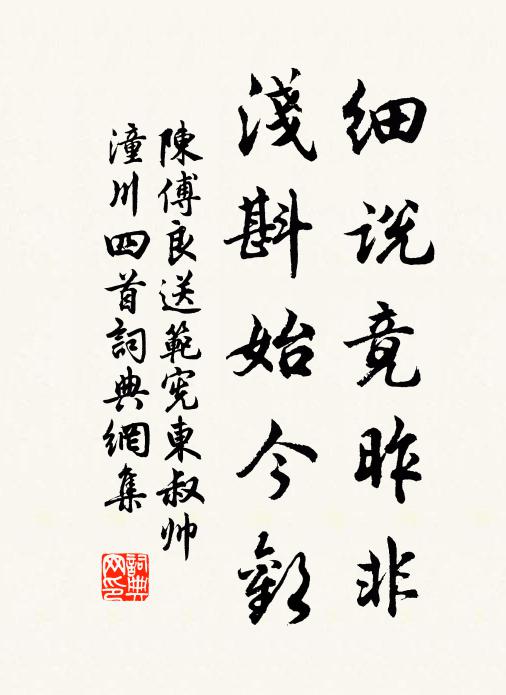 细说竟昨非
淺斟始今歡
陳傅良送範宪東叔帅
潼川四首詞典網集
詞典网印